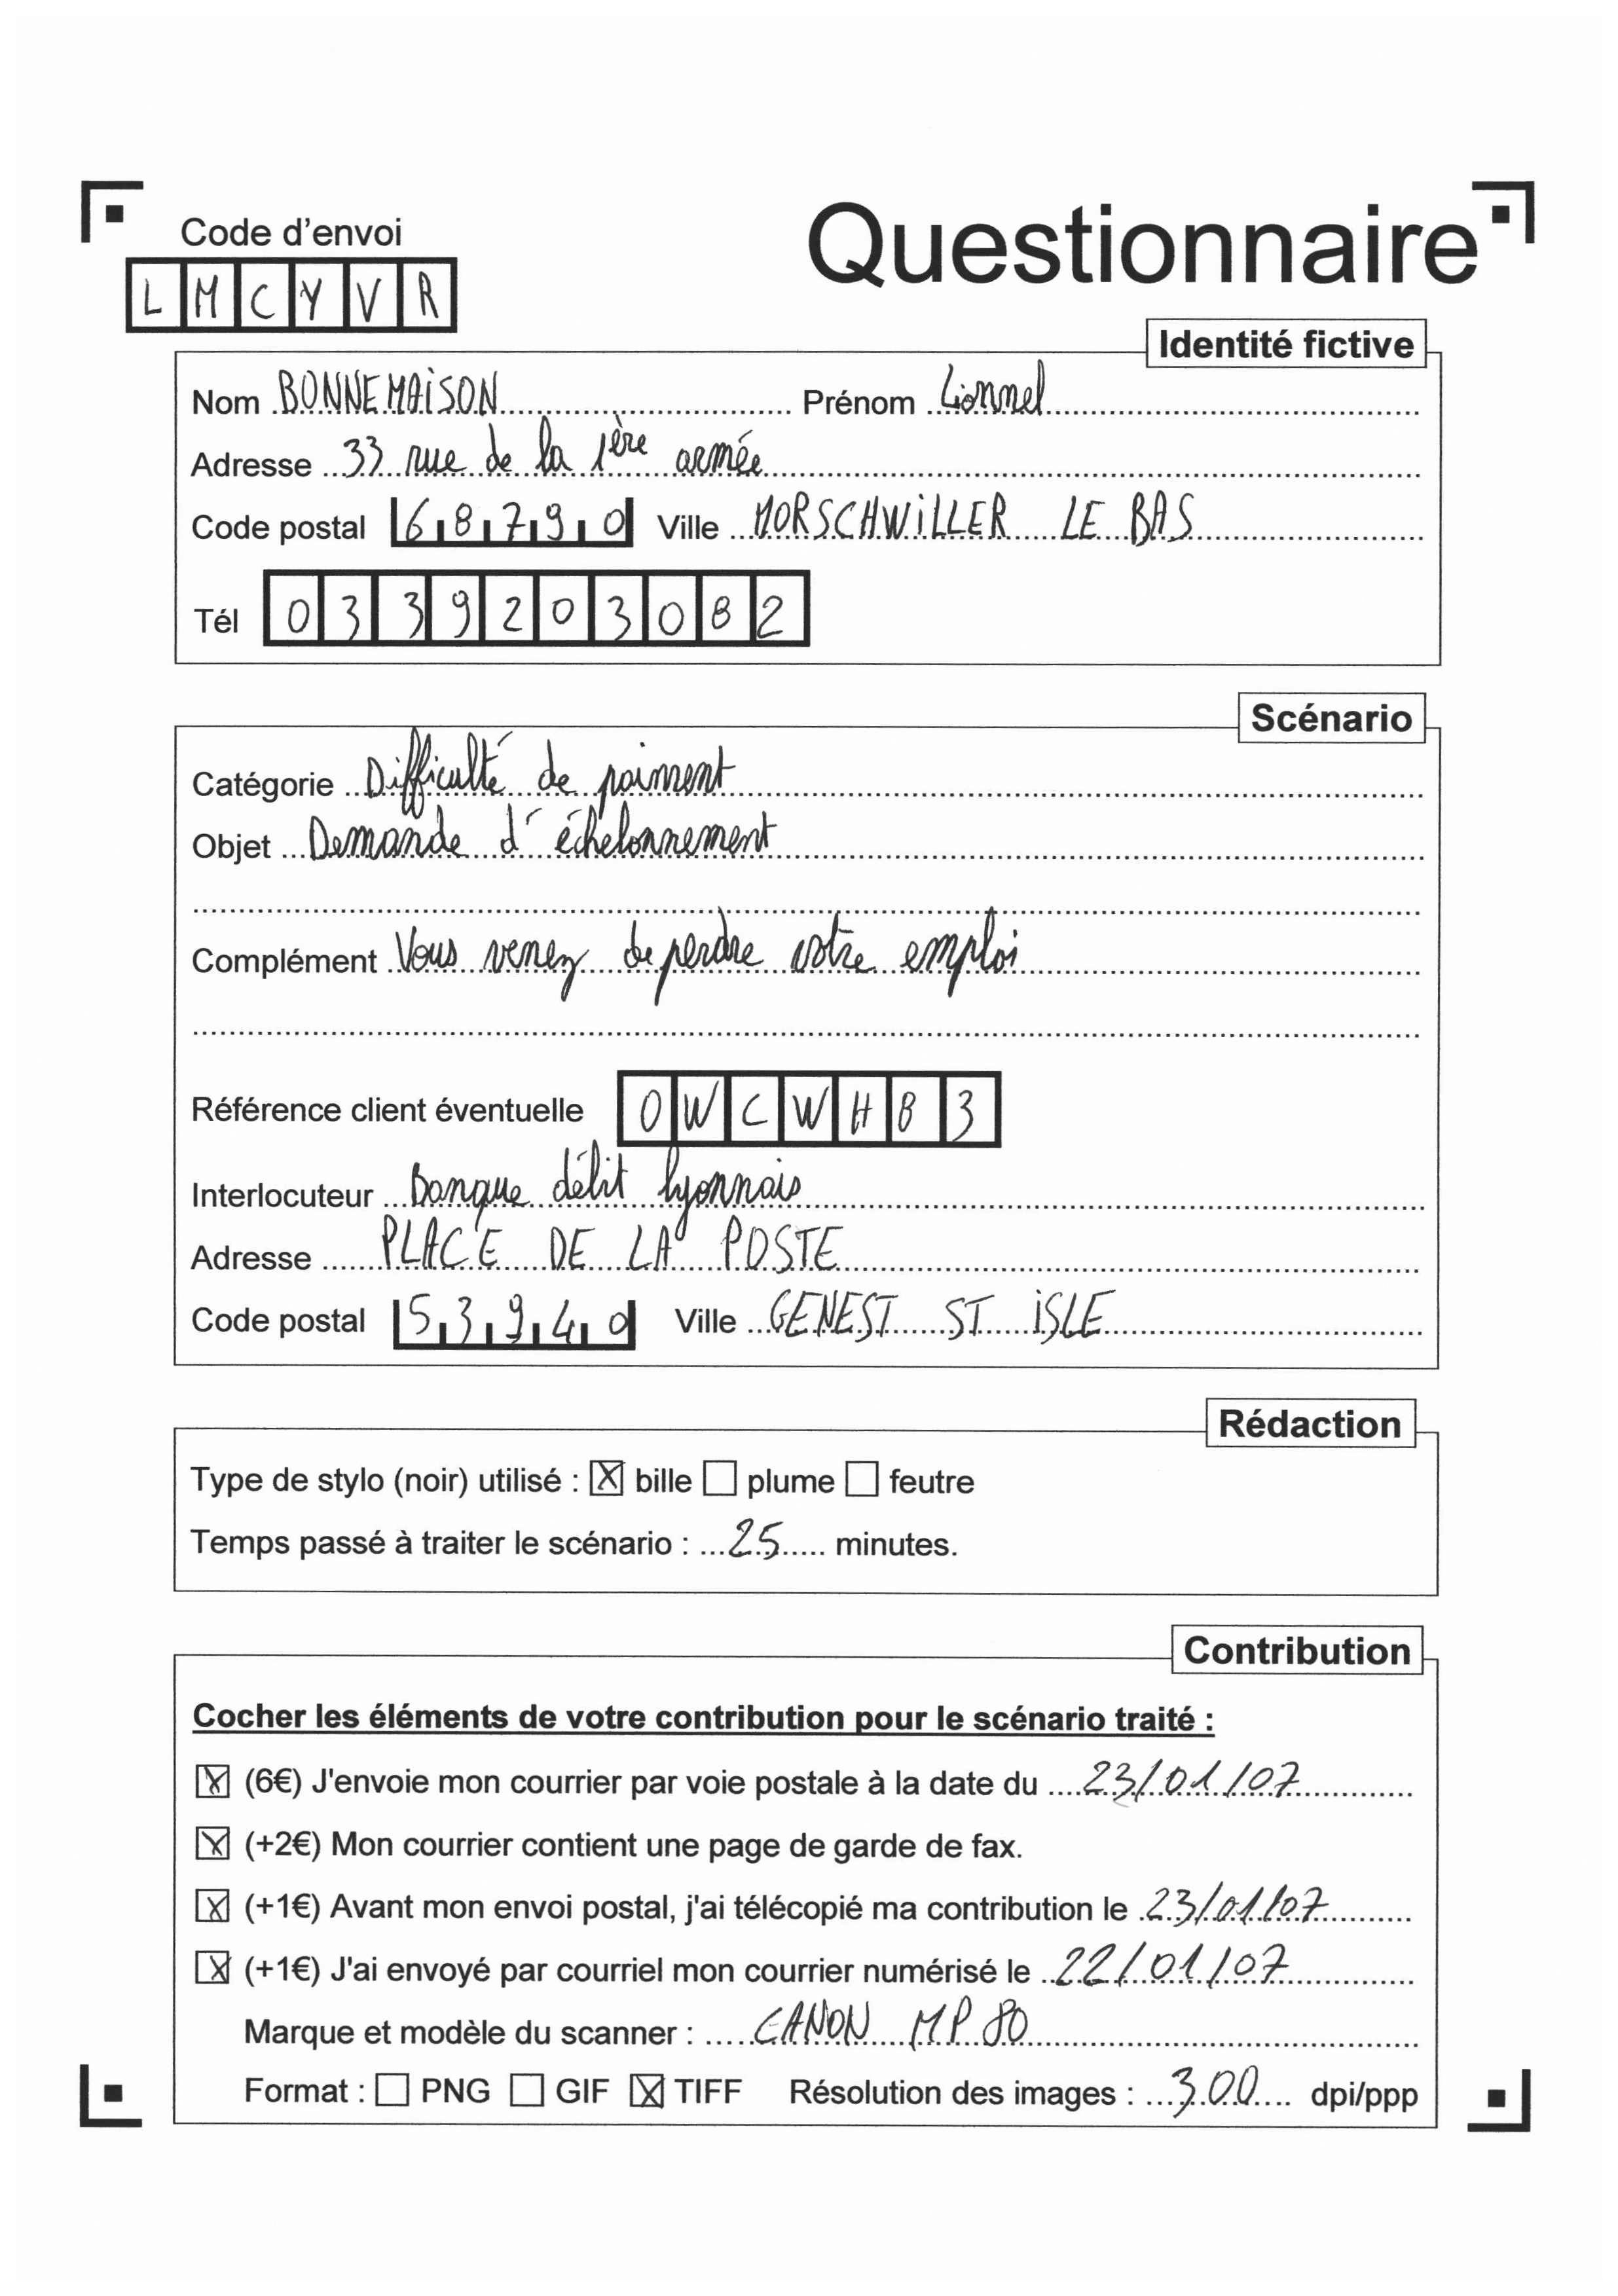 Code d'envoi
LMCYVR
Questionnaire
Identité fictive
Nom BONNEMAISON Prénom Lionnel
Adresse 33 rue de la 1ère armée
Code postal 68790 Ville MORSCHWILLER LE BAS
Tél 0339203082
Scénario
Catégorie Difficulté de paiment
Objet Demande d'échelonnement
Complément Vous venez de perdre votre emploi
Référence client éventuelle OWCWHB3
Interlocuteur Banque délit lyonnais
Adresse PLACE DE LA POSTE
Code postal 53940 Ville GENEST ST ISLE
Rédaction
Type de stylo (noir) utilisé : bille plume feutre
Temps passé à traiter le scénario : 25 minutes.
Contribution
Cocher les éléments de votre contribution pour le scénario traité :
(6€) J'envoie mon courrier par voie postale à la date du 23/01/07
(+2€) Mon courrier contient une page de garde de fax.
(+1€) Avant mon envoi postal, j'ai télécopié ma contribution le 23/01/07
(+1€) J'ai envoyé par courriel mon courrier numérisé le 22/01/07
Marque et modèle du scanner : CANON MP 80
Format : PNG GIF TIFF Résolution des images : 300 dpi/ppp